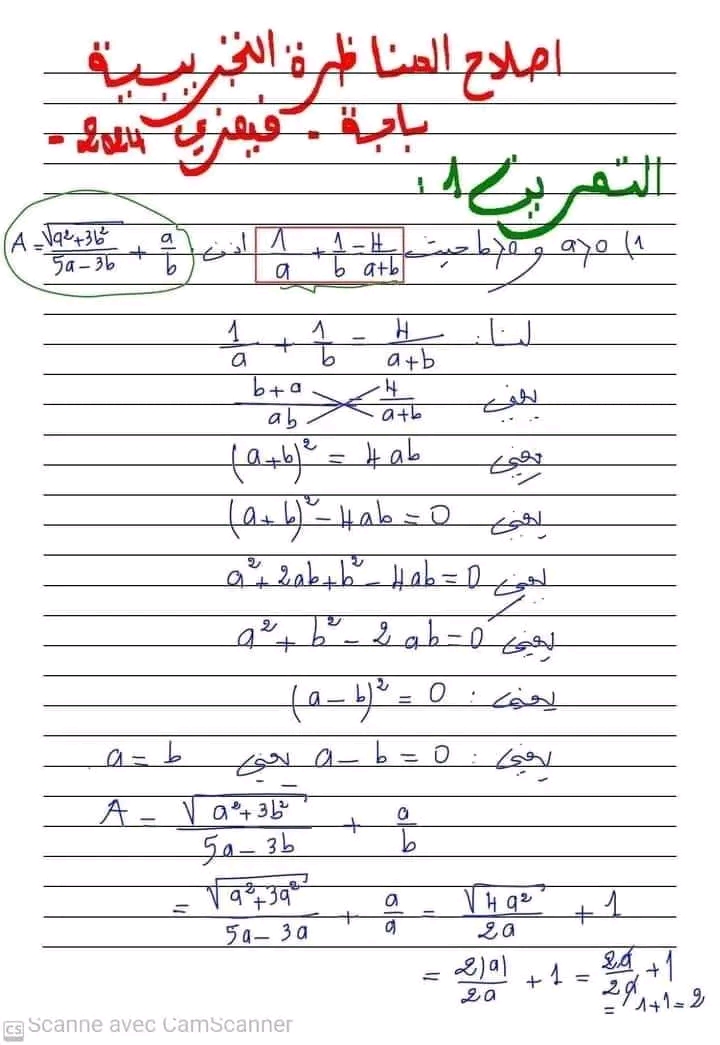 اصلاح المناظرة التجريبية
باجة - فيفري 2024 -
التمرين 1 :
1) a>0 و b>0 حيث 1/a + 1/b = 4/a+b اذن A = √a²+3b²/5a-3b + a/b
لنا : 1/a + 1/b = 4/a+b
يعني b+a/ab 4/a+b
يعني (a+b)² = 4ab
يعني (a+b)² - 4ab = 0
يعني a² + 2ab + b² - 4ab = 0
يعني a² + b² - 2ab = 0
يعني : (a-b)² = 0
يعني : a-b = 0 يعني a = b
A = √a²+3b²/5a-3b + a/b
= √a²+3a²/5a-3a + a/a = √4a²/2a + 1
= 2|a|/2a + 1 = 2a/2a + 1
= 1+1=2
CS Scanne avec CamScanner